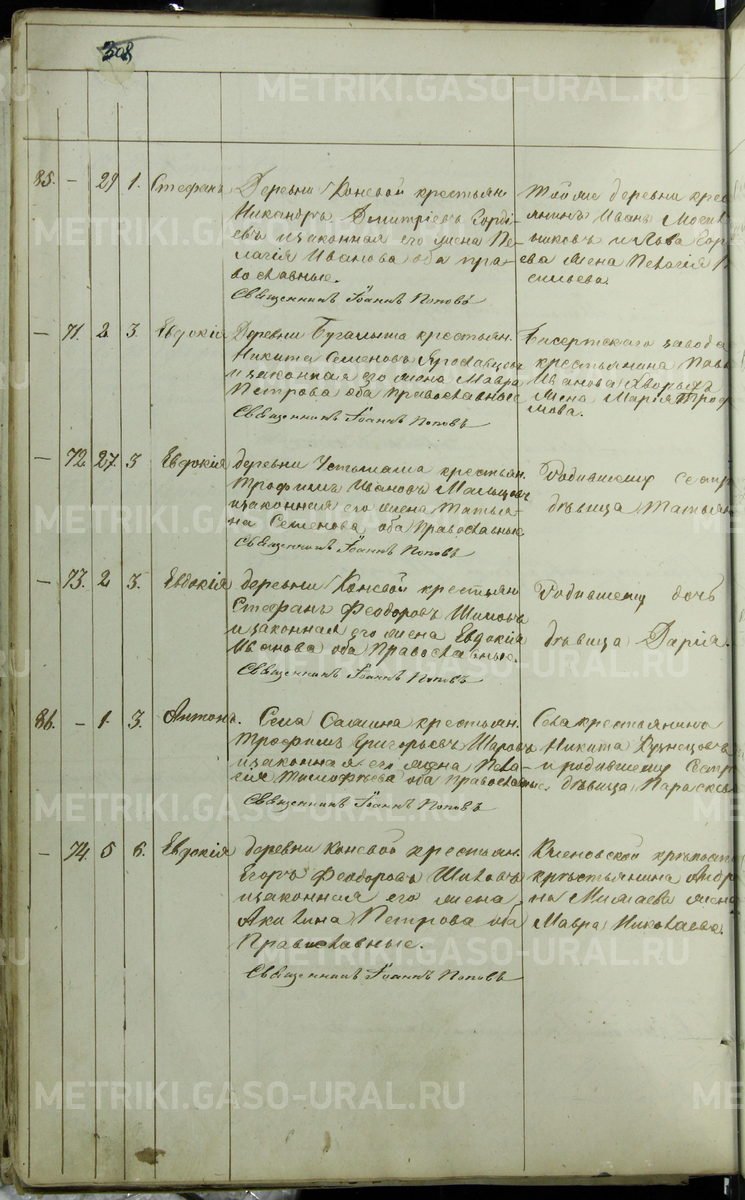 308
85. — 29 1. Стефанъ
Деревни Коневой крестьян.
Никандръ Дмитріевъ Горді-
евъ и законная его жена Пе-
лагія Иванова оба пра-
вославные.
Священникъ Іоаннъ Поповъ
Той же деревни крес
янинъ Иванъ
никовъ и
ева жена Пелагія
сильева.
— 71. 2 3. Евдокія
Деревни Бугалыша крестьян.
Никита Семеновъ Ярославцовъ
и законная его жена Мавра
Петрова оба православные
Священникъ Іоаннъ Поповъ
Бисертскаго завода
крестьянина Павл
Иванова Хворыхъ
жена Марія Троф
мова.
— 72. 27. 3 Евдокія
деревни Устьмаша крестьян.
Трофимъ Ивановъ Мальцовъ
и законная его жена Татья-
на Семенова оба Православные
Священникъ Іоаннъ Поповъ
Родившему сестр
дѣвица Татьян
— 73. 2 3. Евдокія
деревни Коневой крестьян
Стефанъ Феодоровъ
и законная его жена Евдокія
Иванова оба Православные.
Священникъ Іоаннъ Поповъ
Родившему дочь
дѣвица Дарія.
86. — 1. 3. Антонъ.
Села Сажина крестьян.
Трофимъ Григорьевъ
и законная его жена Пела-
гія Тимофѣева оба Православные.
Священникъ Іоаннъ Поповъ
Села крестьянинъ
Никита Кузнецовъ
и родившему Сестр
дѣвица Параскев
— 74. 5 6. Евдокія
деревни Коневой крестьян.
Егоръ Феодоровъ
и законная его жена
Акилина Петрова оба
Православные.
Священникъ Іоаннъ Поповъ
Кленовской крѣпости
крѣстьянина Андр
на жена
Мавра Николаева
METRIKI.GASO-URAL.RU